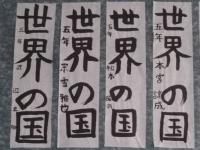 世界の国
五年
世界の国
五年 宗雪雅也
世界の国
五年
世界の国
五年 本宮諒成